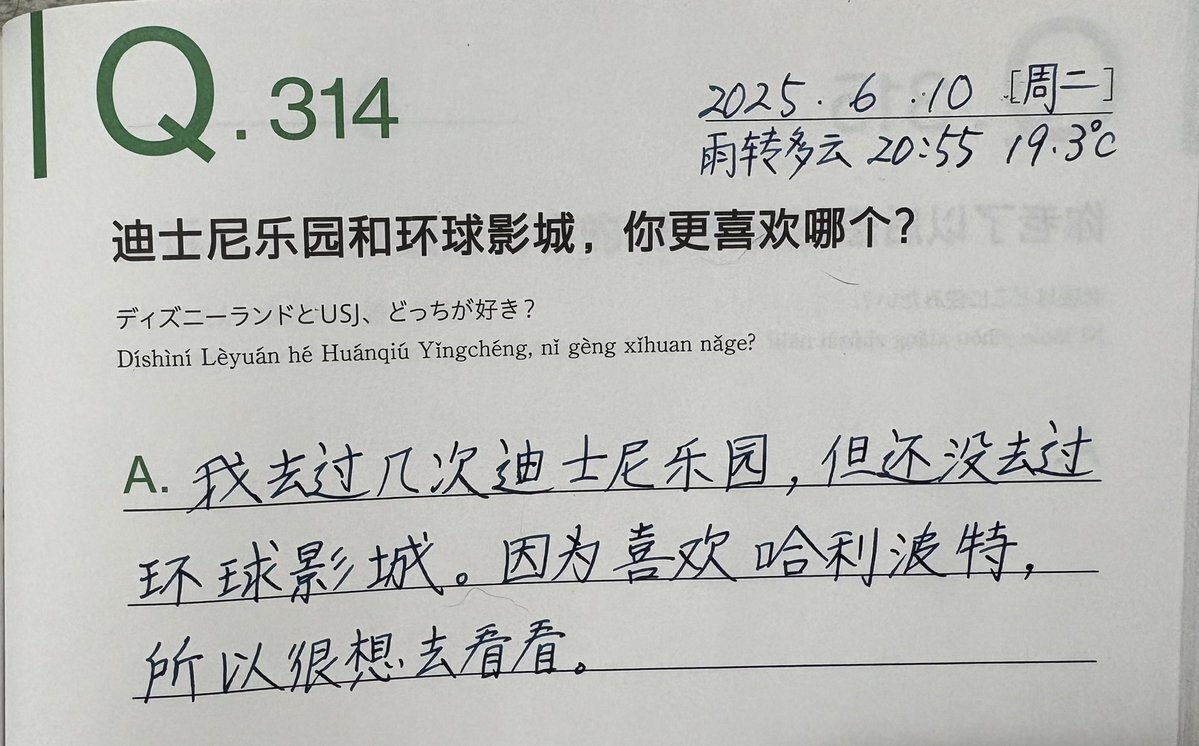 Q.314
2025.6.10 [周二]
雨转多云 20:55 19.3℃
迪士尼乐园和环球影城，你更喜欢哪个？
ディズニーランドとUSJ、どっちが好き？
Díshìní Lèyuán hé Huánqiú Yǐngchéng, nǐ gèng xǐhuan nǎge?
A. 我去过几次迪士尼乐园，但还没去过
环球影城。因为喜欢哈利波特，
所以很想去看看。